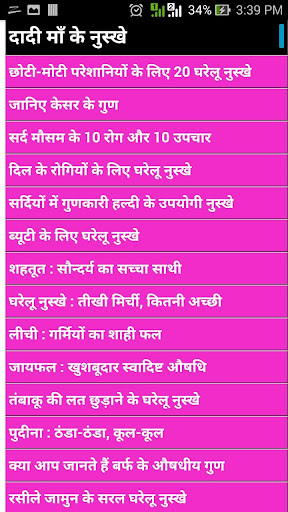 34% 3:39 PM
दादी माँ के नुस्खे
छोटी-मोटी परेशानियों के लिए 20 घरेलू नुस्खे
जानिए केसर के गुण
सर्द मौसम के 10 रोग और 10 उपचार
दिल के रोगियों के लिए घरेलू नुस्खे
सर्दियों में गुणकारी हल्दी के उपयोगी नुस्खे
ब्यूटी के लिए घरेलू नुस्खे
शहतूत : सौन्दर्य का सच्चा साथी
घरेलू नुस्खे : तीखी मिर्ची, कितनी अच्छी
लीची : गर्मियों का शाही फल
जायफल : खुशबूदार स्वादिष्ट औषधि
तंबाकू की लत छुड़ाने के घरेलू नुस्खे
पुदीना : ठंडा-ठंडा, कूल-कूल
क्या आप जानते हैं बर्फ के औषधीय गुण
रसीले जामुन के सरल घरेलू नुस्खे